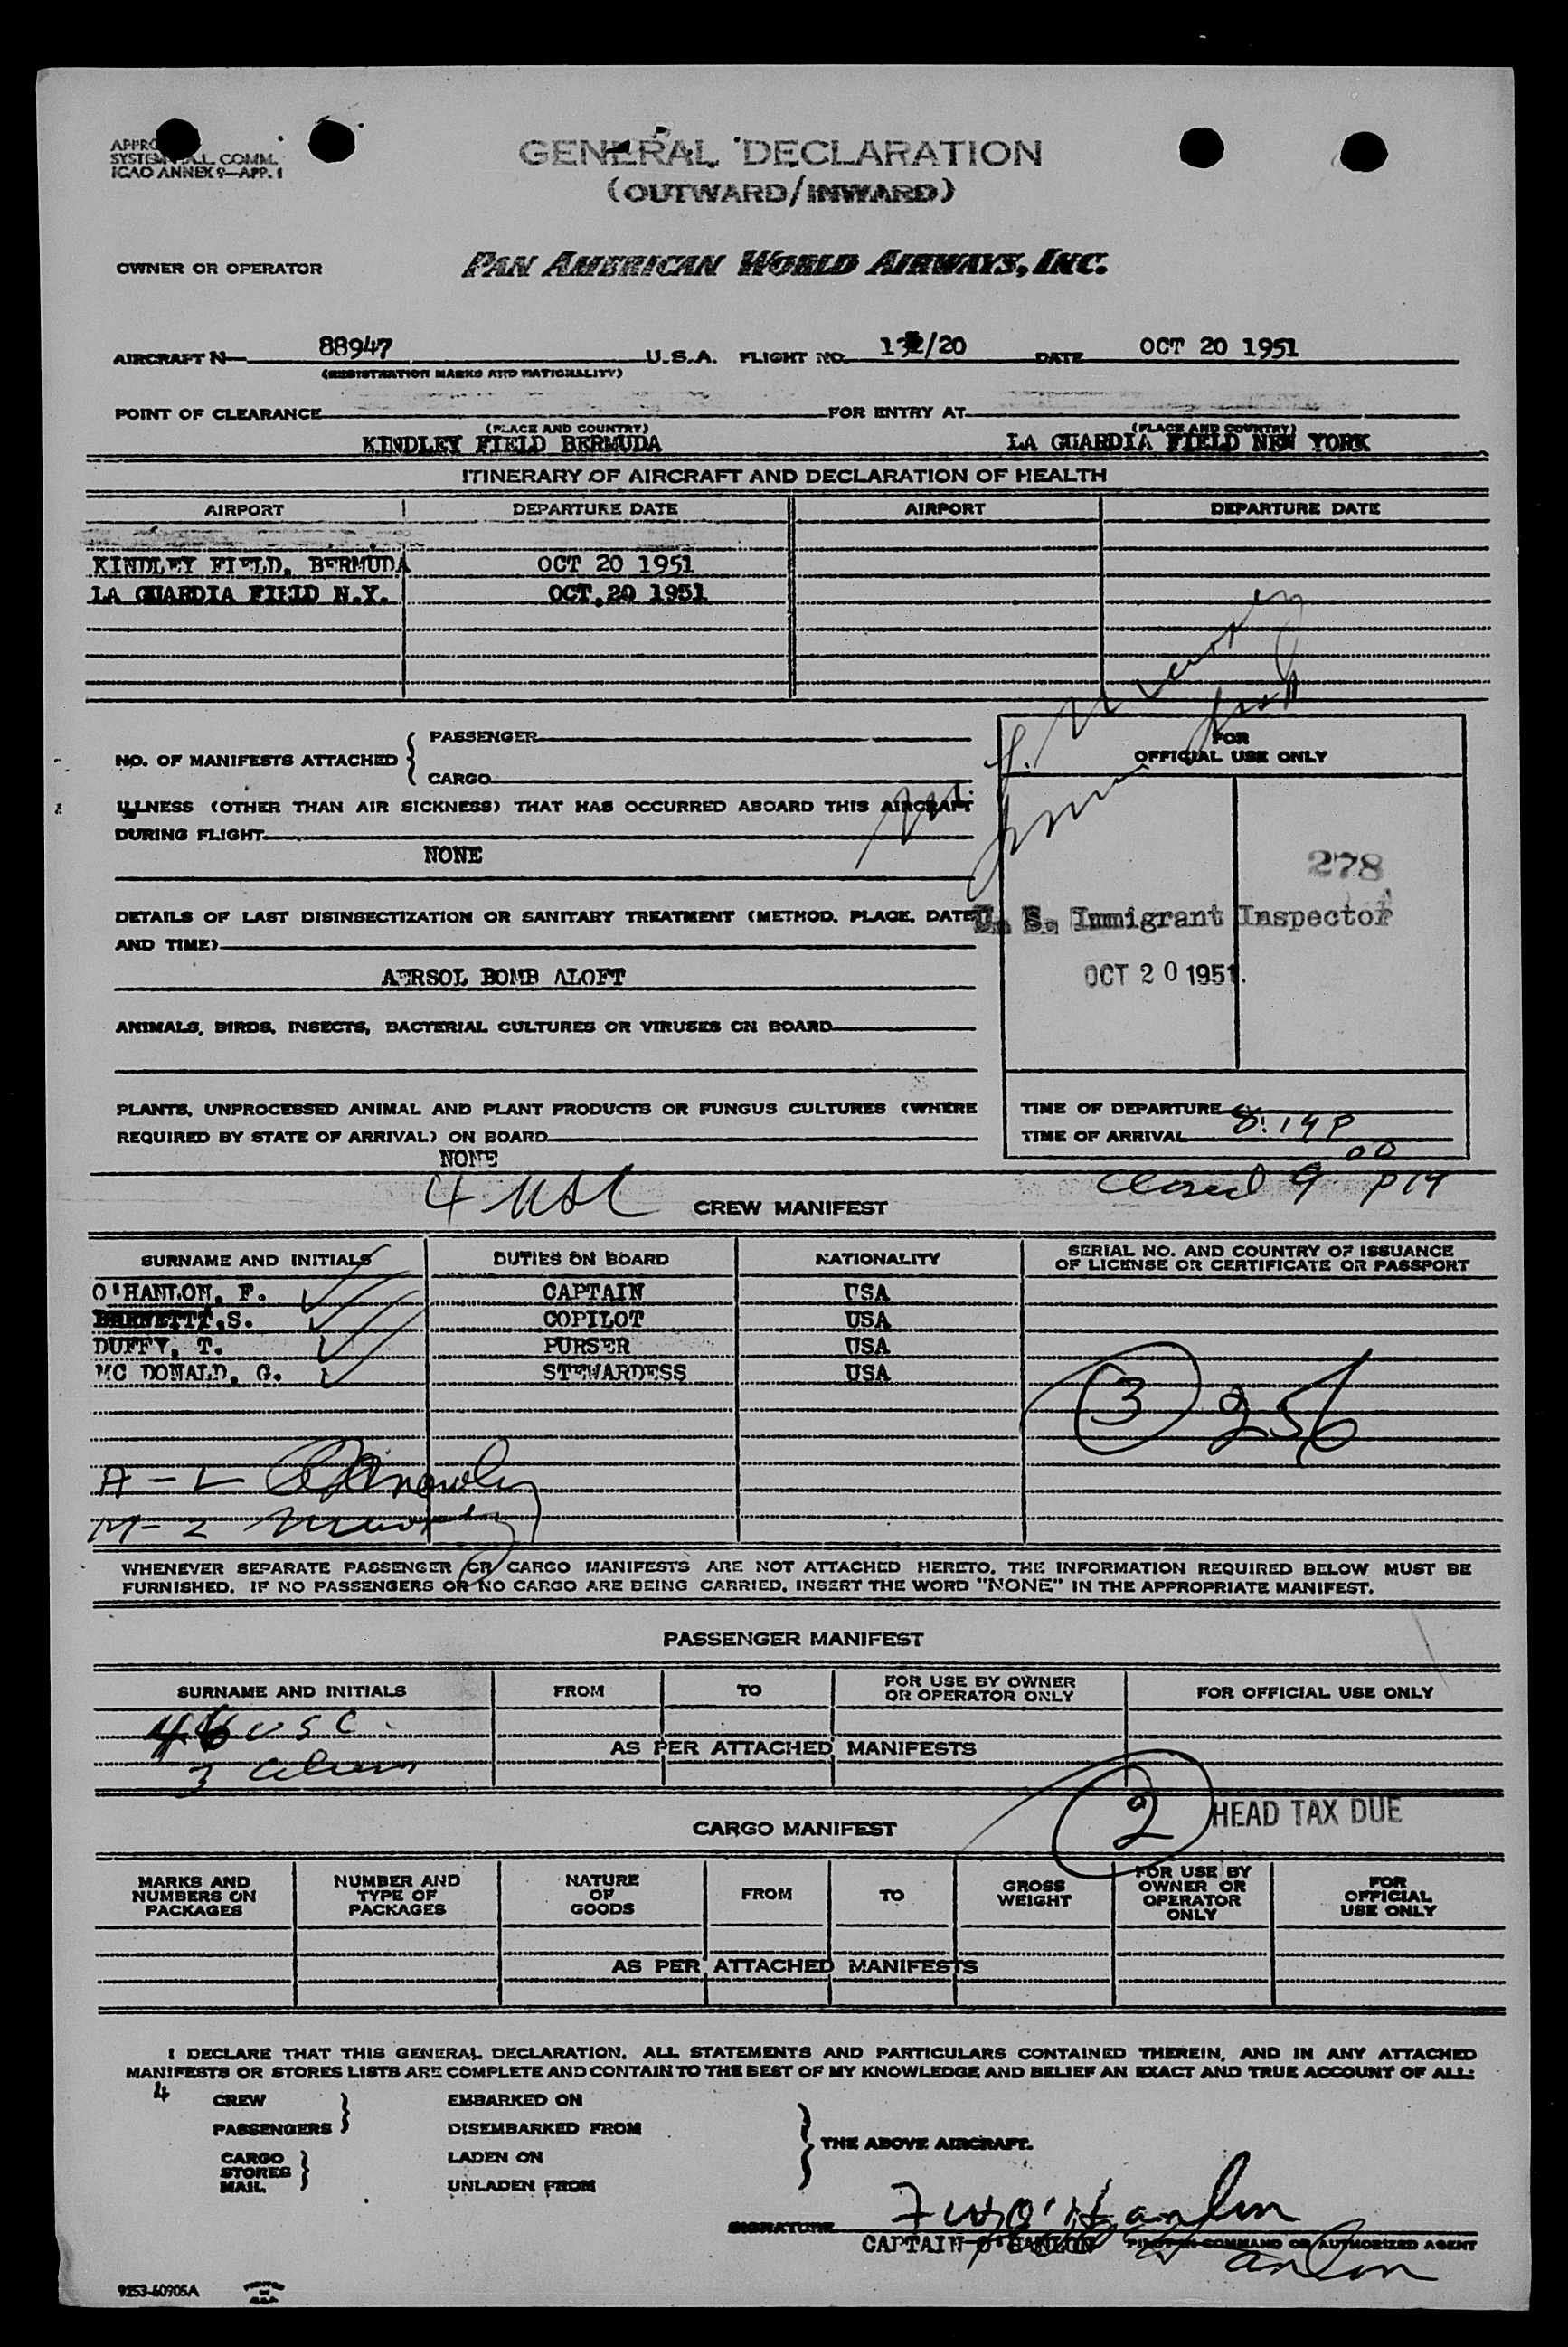 SYSTEM
COMM.
ICAO ANNEX 9—APP. 1
GENERAL DECLARATION
(OUTWARD/INWARD)
OWNER OR OPERATOR
PAN AMERICAN WORLD AIRWAYS, INC.
AIRCRAFT N— 88947 U.S.A. FLIGHT NO. /20 DATE OCT 20 1951
(REGISTRATION MARKS AND NATIONALITY)
POINT OF CLEARANCE FOR ENTRY AT
(PLACE AND COUNTRY) (PLACE AND COUNTRY)
KINDLEY FIELD BERMUDA LA GUARDIA FIELD NEW YORK
ITINERARY OF AIRCRAFT AND DECLARATION OF HEALTH
AIRPORT DEPARTURE DATE AIRPORT DEPARTURE DATE
KINDLEY FIELD, BERMUDA OCT 20 1951
LA GUARDIA FIELD N.Y. OCT 20 1951
NO. OF MANIFESTS ATTACHED { PASSENGER
CARGO
FOR
OFFICIAL USE ONLY
ILLNESS (OTHER THAN AIR SICKNESS) THAT HAS OCCURRED ABOARD THIS AIRCRAFT
DURING FLIGHT
NONE
278
DETAILS OF LAST DISINSECTIZATION OR SANITARY TREATMENT (METHOD, PLACE, DATE
AND TIME)
U. S. Immigrant Inspector
AERSOL BOMB ALOFT
OCT 20 1951
ANIMALS, BIRDS, INSECTS, BACTERIAL CULTURES OR VIRUSES ON BOARD
PLANTS, UNPROCESSED ANIMAL AND PLANT PRODUCTS OR FUNGUS CULTURES (WHERE
REQUIRED BY STATE OF ARRIVAL) ON BOARD
NONE
TIME OF DEPARTURE
TIME OF ARRIVAL 8:14P
Closed 9 00 PM
4 USC
CREW MANIFEST
SURNAME AND INITIALS DUTIES ON BOARD NATIONALITY SERIAL NO. AND COUNTRY OF ISSUANCE
OF LICENSE OR CERTIFICATE OR PASSPORT
O'HANLON, F. CAPTAIN USA
BARNETTT,S. COPILOT USA
DUFFY, T. PURSER USA
MC DONALD, G. STEWARDESS USA
3 256
A - L
M - Z
WHENEVER SEPARATE PASSENGER OR CARGO MANIFESTS ARE NOT ATTACHED HERETO, THE INFORMATION REQUIRED BELOW MUST BE
FURNISHED. IF NO PASSENGERS OR NO CARGO ARE BEING CARRIED, INSERT THE WORD "NONE" IN THE APPROPRIATE MANIFEST.
PASSENGER MANIFEST
SURNAME AND INITIALS FROM TO FOR USE BY OWNER
OR OPERATOR ONLY FOR OFFICIAL USE ONLY
46 USC
AS PER ATTACHED MANIFESTS
3 aliens
2 HEAD TAX DUE
CARGO MANIFEST
MARKS AND
NUMBERS ON
PACKAGES
NUMBER AND
TYPE OF
PACKAGES
NATURE
OF
GOODS
FROM
TO
GROSS
WEIGHT
FOR USE BY
OWNER OR
OPERATOR
ONLY
FOR
OFFICIAL
USE ONLY
AS PER ATTACHED MANIFESTS
I DECLARE THAT THIS GENERAL DECLARATION, ALL STATEMENTS AND PARTICULARS CONTAINED THEREIN, AND IN ANY ATTACHED
MANIFESTS OR STORES LISTS ARE COMPLETE AND CONTAIN TO THE BEST OF MY KNOWLEDGE AND BELIEF AN EXACT AND TRUE ACCOUNT OF ALL:
4 CREW EMBARKED ON
PASSENGERS DISEMBARKED FROM
THE ABOVE AIRCRAFT.
CARGO LADEN ON
STORES
MAIL UNLADEN FROM
SIGNATURE F W O'Hanlon
CAPTAIN O'HANLON PILOT IN COMMAND OR AUTHORIZED AGENT
9253-60905A
PRINTED
IN
U.S.A.